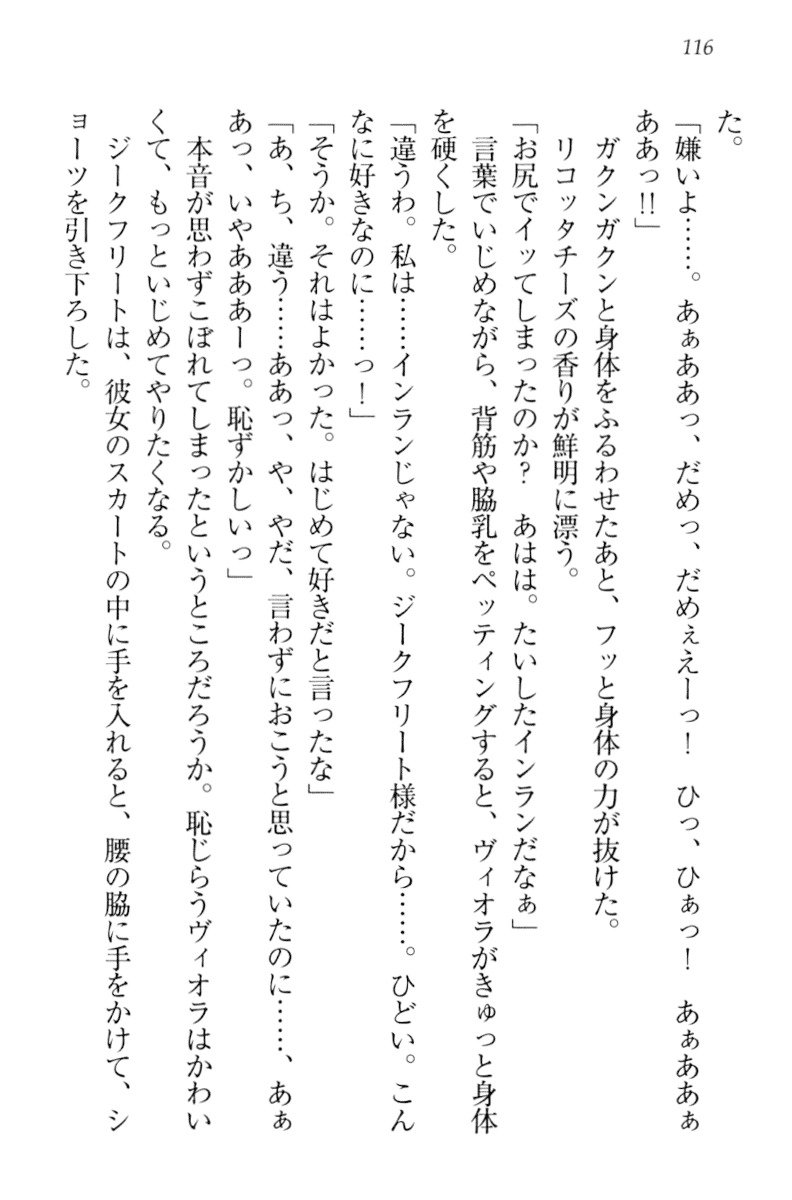 116
た。
「嫌いよ……。あぁああっ、だめっ、だめぇえーっ！　ひっ、ひぁっ！　あぁああぁ
ああっ!!」
　ガクンガクンと身体をふるわせたあと、フッと身体の力が抜けた。
　リコッタチーズの香りが鮮明に漂う。
「お尻でイッてしまったのか？　あはは。たいしたインランだなぁ」
　言葉でいじめながら、背筋や脇乳をペッティングすると、ヴィオラがきゅっと身体
を硬くした。
「違うわ。私は……インランじゃない。ジークフリート様だから……。ひどい。こん
なに好きなのに……っ！」
「そうか。それはよかった。はじめて好きだと言ったな」
「あ、ち、違う……ああっ、や、やだ、言わずにおこうと思っていたのに……、あぁ
あっ、いやあああーっ。恥ずかしいっ」
　本音が思わずこぼれてしまったというところだろうか。恥じらうヴィオラはかわい
くて、もっといじめてやりたくなる。
　ジークフリートは、彼女のスカートの中に手を入れると、腰の脇に手をかけて、シ
ョーツを引き下ろした。